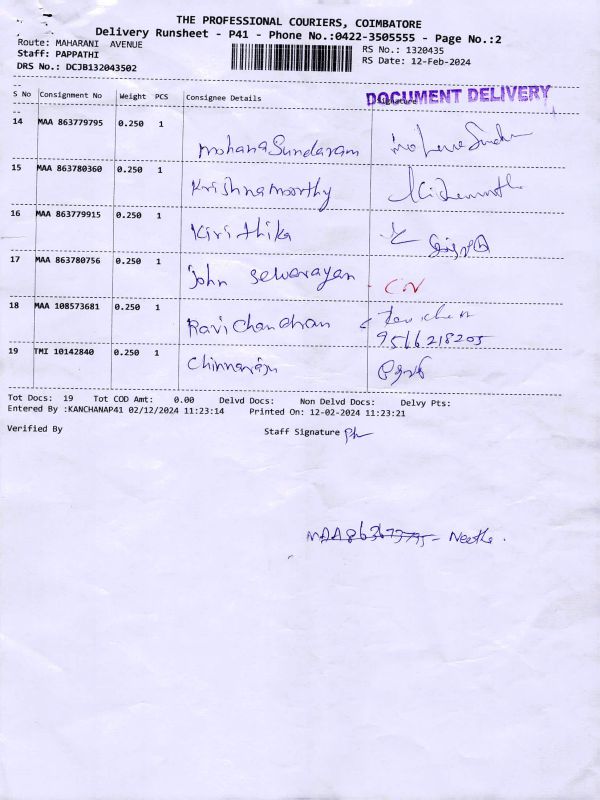 THE PROFESSIONAL COURIERS, COIMBATORE
Delivery Runsheet - P41 - Phone No.:0422-3505555 - Page No.:2
Route: MAHARANI AVENUE
Staff: PAPPATHI
DRS No.: DCJB132043502
RS No.: 1320435
RS Date: 12-Feb-2024
DOCUMENT DELIVERY
S No Consignment No Weight PCS Consignee Details Signature
14 MAA 863779795 0.250 1 mohanaSundaram
15 MAA 863780360 0.250 1 Krishnamoorthy
16 MAA 863779915 0.250 1 Kirithika
17 MAA 863780756 0.250 1 John Selvarayan CN
18 MAA 108573681 0.250 1 Ravichandran
9566218205
19 TMI 10142840 0.250 1 Chinnaraju
Tot Docs: 19 Tot COD Amt: 0.00 Delvd Docs: Non Delvd Docs: Delvy Pts:
Entered By :KANCHANAP41 02/12/2024 11:23:14 Printed On: 12-02-2024 11:23:21
Verified By Staff Signature